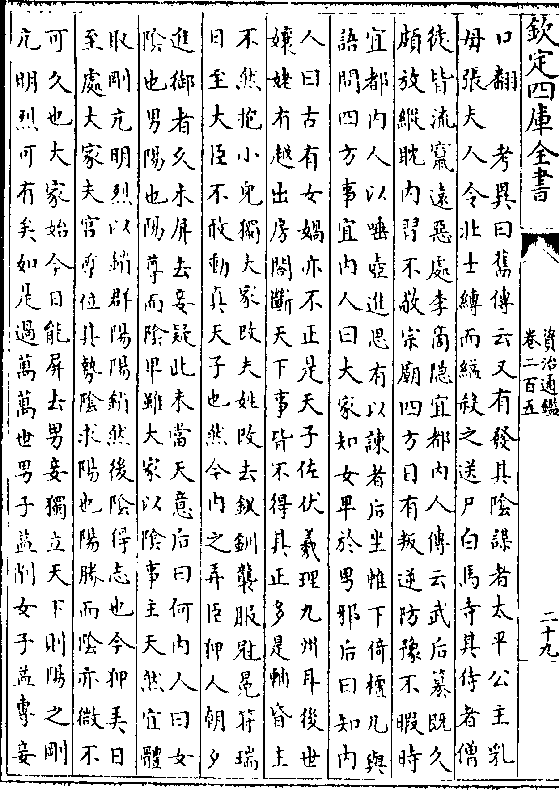 欽定四庫全書
資治通鑑
卷二百五
二十九
口翻　考異曰舊傳云又有發其陰謀者太平公主乳
母張夫人令壯士縛而縊殺之送尸白馬寺其侍者僧
徒皆流竄遠惡處李商隐宜都内人傳云武后簒既久
頗放縱耽内習不敬宗廟四方日有叛逆防豫不暇時
宜都内人以唾壺進思有以諫者后坐帷下倚檀几與
語問四方事宜内人曰大家知女卑於男邪后曰知内
人曰古有女媧亦不正是天子佐伏羲理九州耳後世
孃姥有越出房閤斷天下事皆不得其正多是輔昏主
不然抱小兒獨大家改夫姓改去釵釧襲服冠冕符瑞
日至大臣不敢動真天子也然今内之弄臣狎人朝夕
進御者久未屏去妾疑此未當天意后曰何内人曰女
陰也男陽也陽尊而陰卑雖大家以陰事主天然宜體
取剛亢明烈以銷群陽陽銷然後陰得志也今狎美日
至處大家夫宮尊位其勢陰求陽也陽勝而陰亦微不
可久也大家始今日能屏去男妾獨立天下則陽之剛
亢明烈可有矣如是過萬萬世男子益削女子益專妾